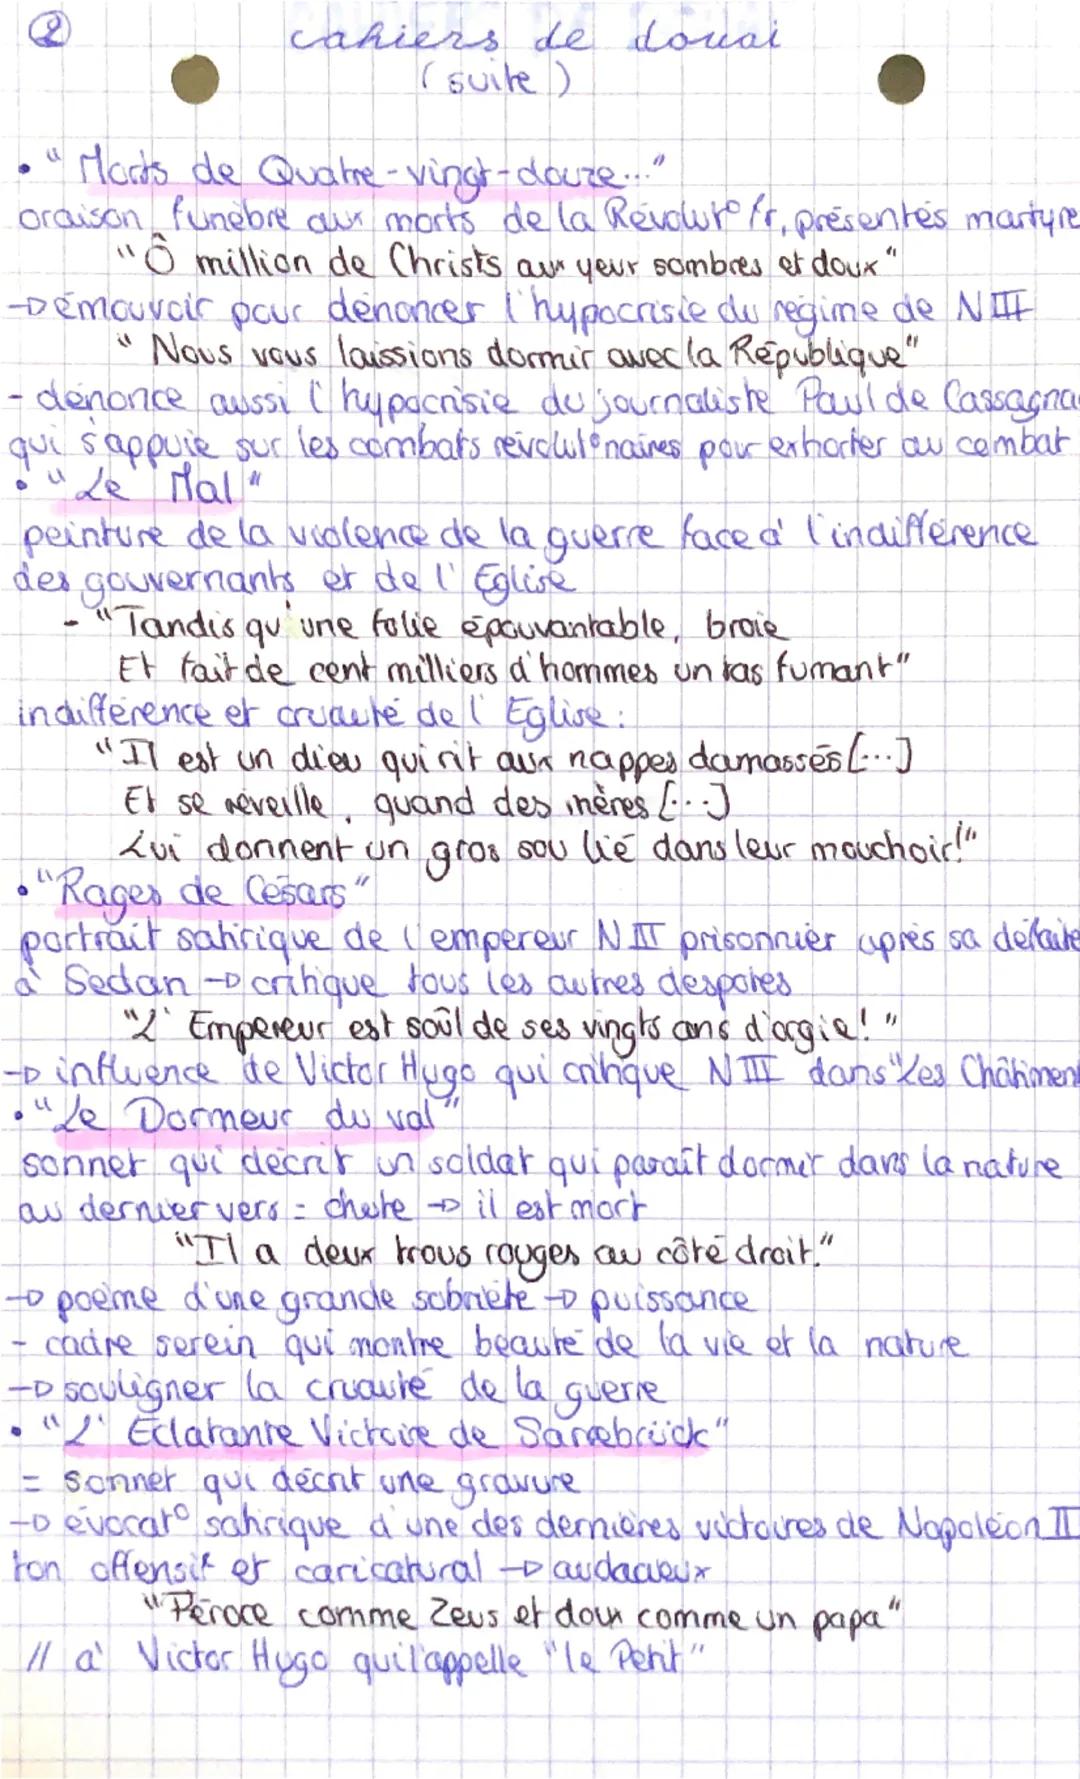 ②
cahiers de douai
(suite)
• "Morts de Quatre-vingt-douze..."
oraison funèbre aux morts de la Révolut° fr, présentés martyre
"Ô million de Christs aux yeux sombres et doux"
→ émouvoir pour dénoncer l'hypocrisie du régime de NIII
"Nous vous laissions dormir avec la République"
- dénonce aussi l'hypocrisie du journaliste Paul de Cassagna
qui s'appuie sur les combats révolut°naires pour exhorter au combat
• "Le Mal"
peinture de la violence de la guerre face à l'indifférence
des gouvernants et de l'Eglise
- "Tandis qu'une folie épouvantable, broie
Et fait de cent milliers d'hommes un tas fumant"
indifférence et cruauté de l'Eglise :
"Il est un dieu qui rit aux nappes damassés [...]
Et se réveille, quand des mères [...]
Lui donnent un gros sou lié dans leur mouchoir!"
• "Rages de Césars"
portrait satirique de l'empereur NIII prisonnier après sa défaite
à Sedan → critique tous les autres despotes
"L'Empereur est soûl de ses vingts ans d'orgie!"
→ influence de Victor Hugo qui critique NIII dans "Les Châtiment
• "Le Dormeur du val"
sonnet qui décrit un soldat qui paraît dormir dans la nature
au dernier vers = chute → il est mort
"Il a deux trous rouges au côté droit."
→ poème d'une grande sobriété → puissance
- cadre serein qui montre beauté de la vie et la nature
→ souligner la cruauté de la guerre
• "L'Eclatante Victoire de Sarrebrück"
= sonnet qui décrit une gravure
→ évocat° satirique d'une des dernières victoires de Napoléon II
ton offensif et caricatural → audacieux
"Féroce comme Zeus et doux comme un papa"
// à Victor Hugo qui l'appelle "le Petit"